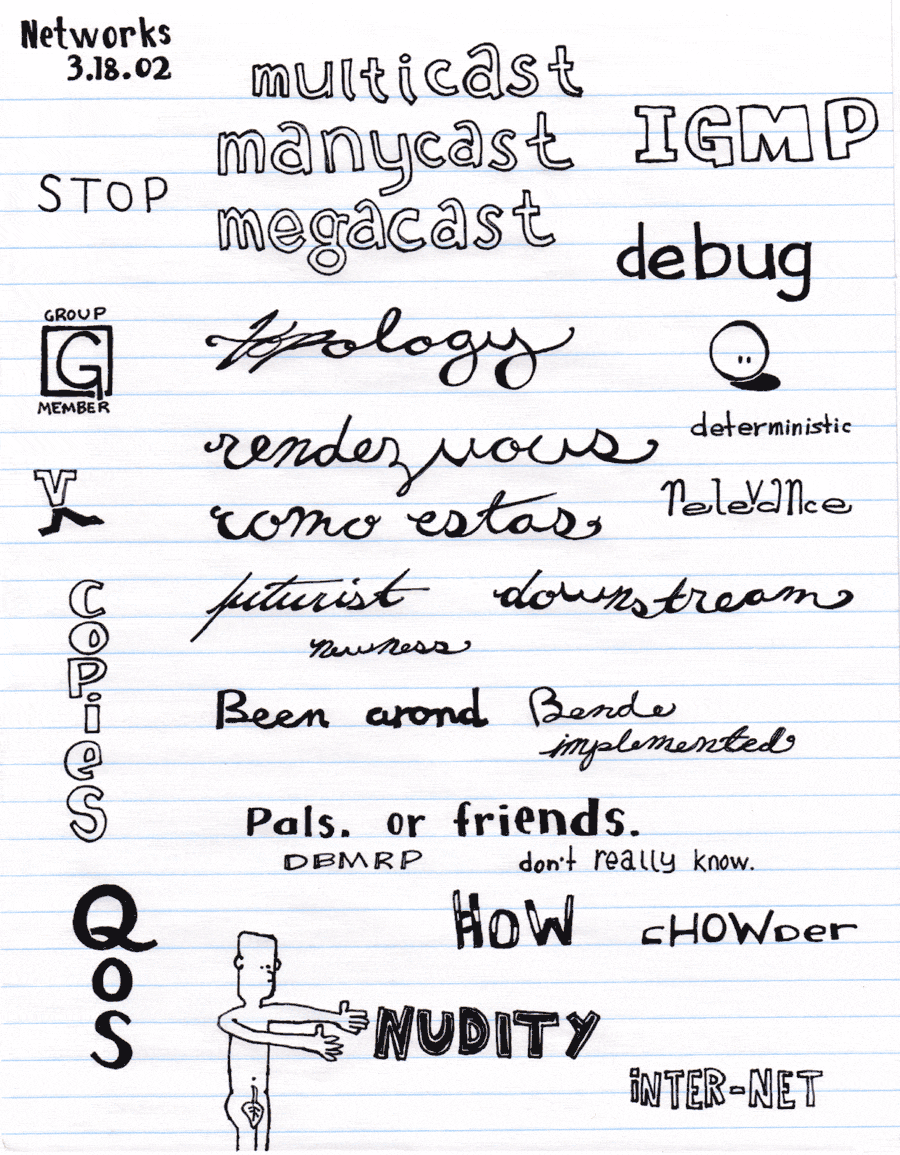 Networks
3.18.02
multicast
manycast
megacast
IGMP
STOP
debug
GROUP
G
MEMBER
topology
deterministic
rendezvous
relevance
V
como estas
futurist downstream
newness
copies
Been arond Bende
implemented
Pals. or friends.
DBMRP don't really know.
QoS
HOW cHOWDer
NUDITY
iNTER-NET